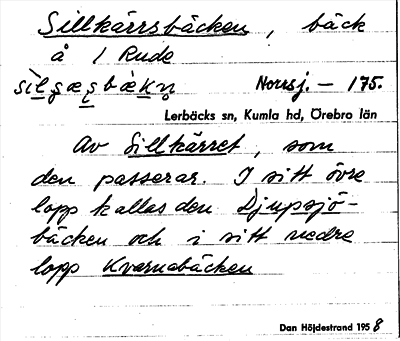 Sillkärrsbäcken, bäck
å / Rude
Norrsj. – 175.
Lerbäcks sn, Kumla hd, Örebro län
Av Sillkärret, som
den passerar. I sitt övre
lopp kallas den Djupsjö-
bäcken och i sitt nedre
lopp Kvarnabäcken
Dan Höjdestrand 1958